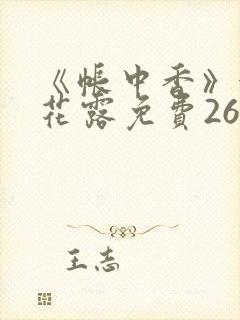 《帐中香》
花露免費26
王志